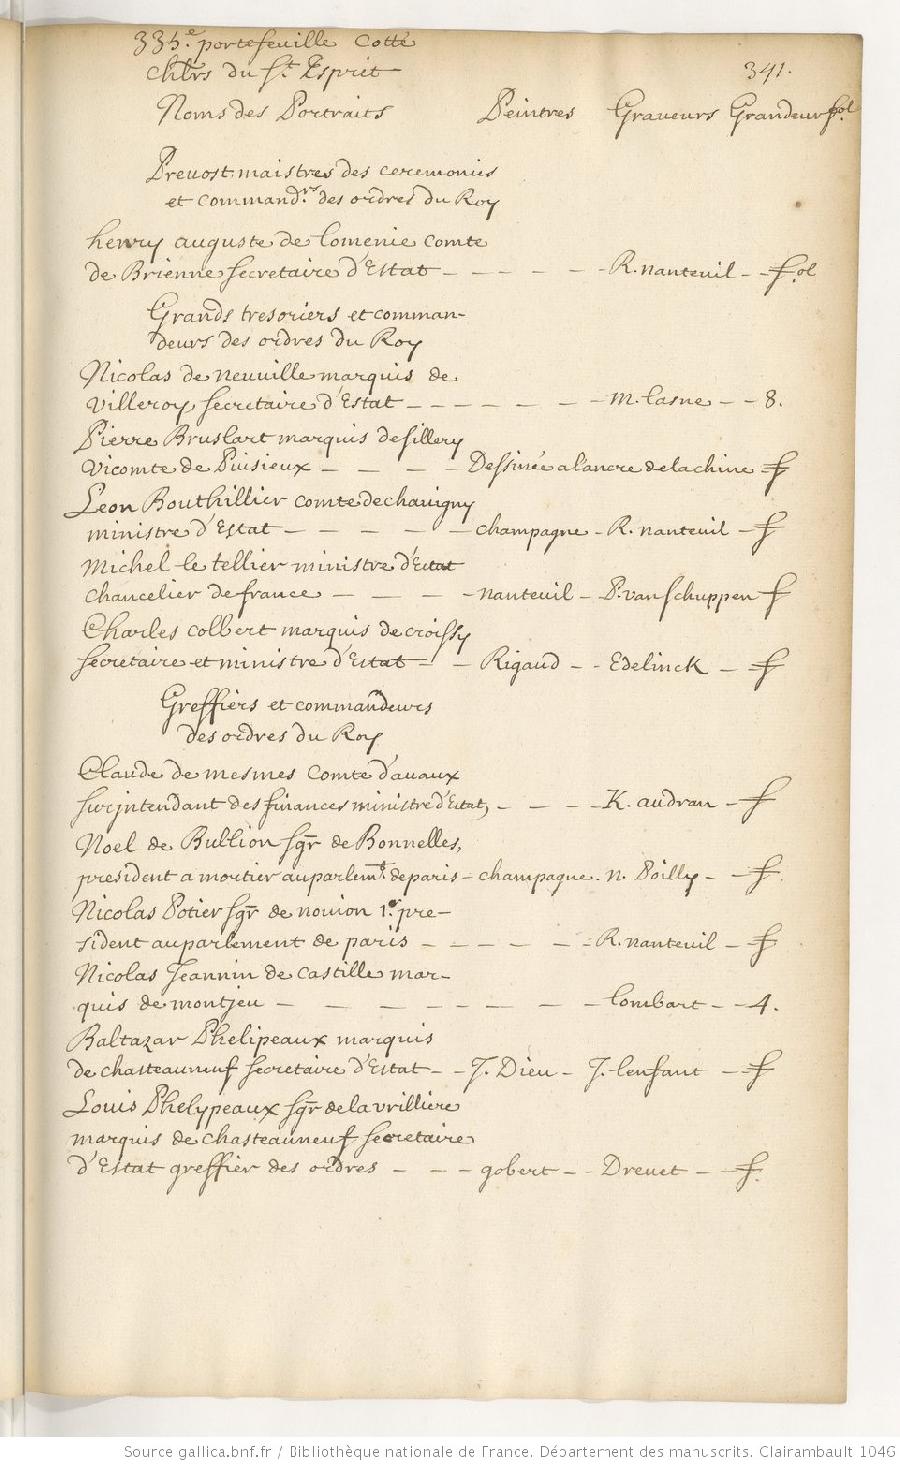 335.e portefeuille Cotté
Chlrs du St Esprit 341.
Noms des Portraits Peintres Graveurs Grandeur fol.
Prevost maistres des ceremonies
et command.rs des ordres du Roy
henry auguste de lomenie comte
de Brienne secretaire d'Estat - - - - - R. nanteuil - - fol
Grands tresoriers et comman-
deurs des ordres du Roy
Nicolas de neuville marquis de
Villeroy secretaire d'Estat - - - - - - - m. lasne - - 8.
Pierre Bruslart marquis de sillery
Vicomte de Puisieux - - - - Dessinée a l'ancre de la chine - f
Leon Bouthillier comte de chavigny
ministre d'Estat - - - - - champagne - R. nanteuil - f
Michel le tellier ministre d'Estat
chancelier de france - - - - nanteuil - P. van schuppen f
Charles colbert marquis de croissy
secretaire et ministre d'Estat - - Rigaud - - Edelinck - f
Greffiers et commandeurs
des ordres du Roy
Claude de mesmes comte d'avaux
surjntendant des finances ministre d'Estat, - - - - K. audran - f
Noel de Bullion sgr de Bonnelles,
president a mortier au parlemt. de paris - champagne. n. Poilly - - f.
Nicolas Potier sgr de novion 1.er pre-
sident au parlement de paris - - - - - - R. nanteuil - f
Nicolas Jeannin de Castille mar-
quis de montjeu - - - - - - - - lombart - - 4.
Baltazar Phelipeaux marquis
de chasteauneuf secretaire d'Estat - - J. Dieu - J. lenfant - f
Louis Phelypeaux sgr de la vrilliere
marquis de chasteauneuf secretaire
d'Estat greffier des ordres - - - gobert - - Drevet - f.
Source gallica.bnf.fr / Bibliothèque nationale de France. Département des manuscrits. Clairambault 1046